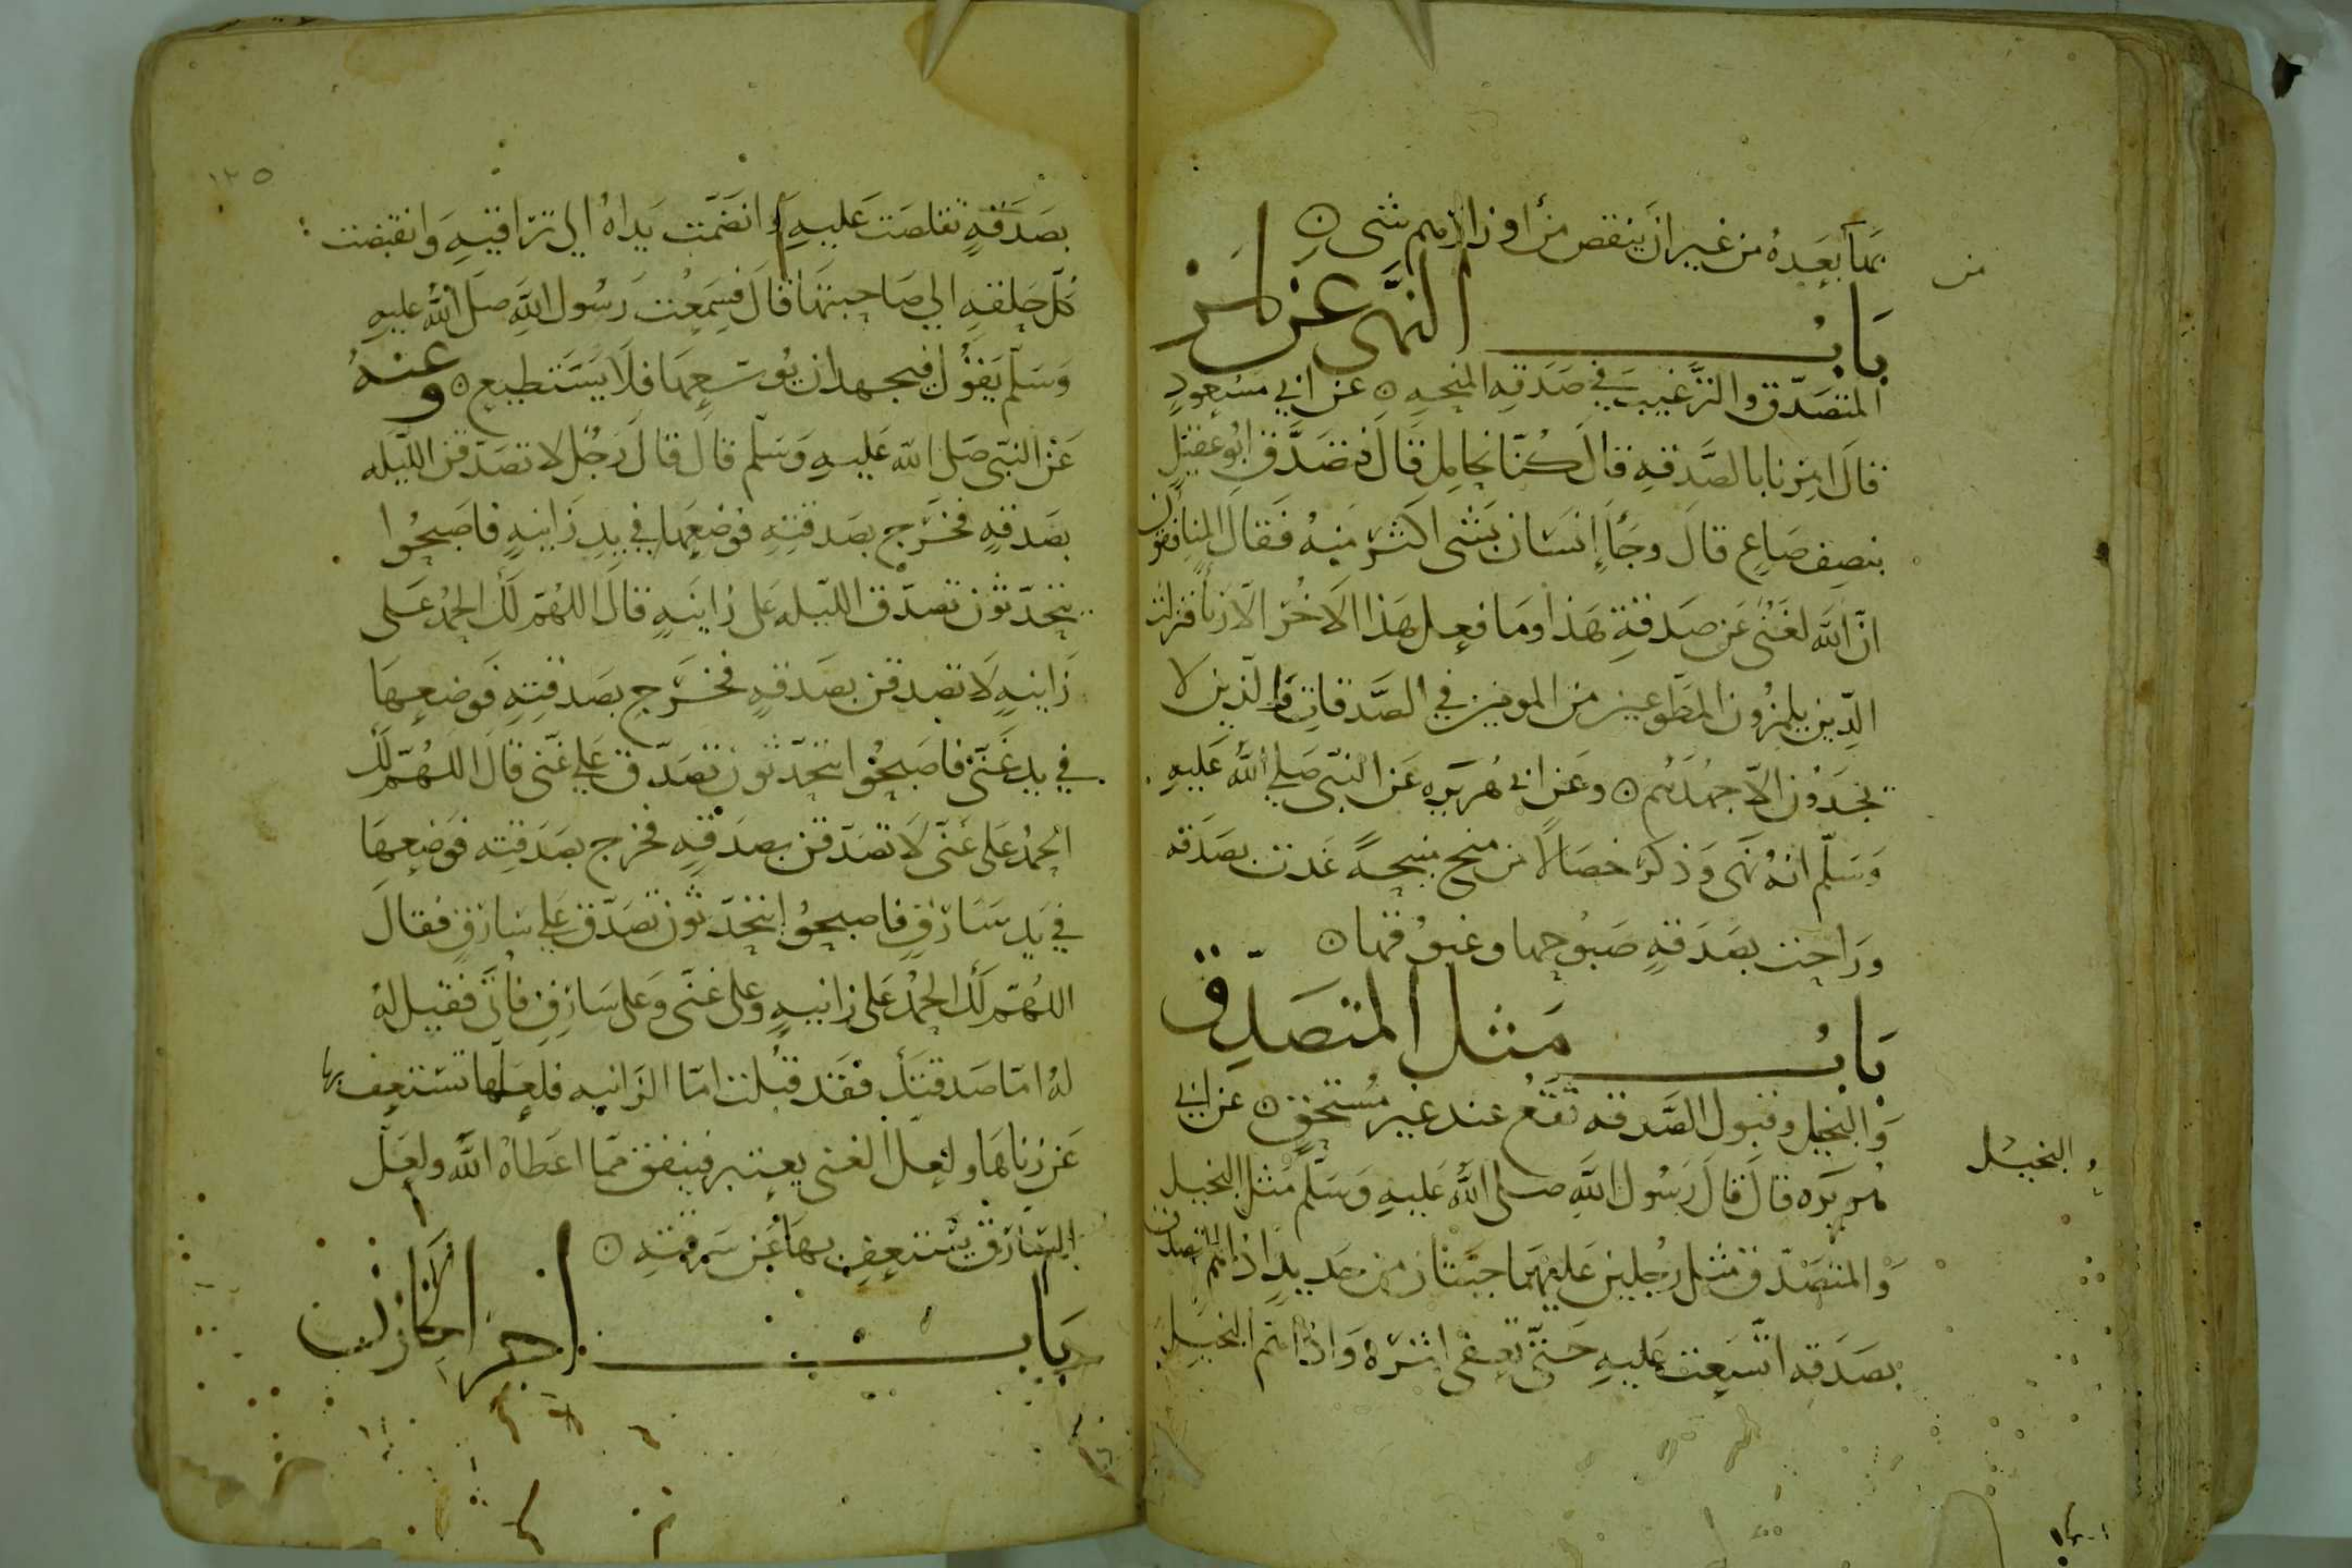 بها بعده من غير ان ينقص من اوزارهم شى
من
باب النهى عن لمز
المتصدق والترغيب في صدقه المنحه عن ابي مسعود
قال امرنا بالصدقه قال كنا نحامل قال فتصدق ابو عقيل
بنصف صاع قال وجأ إنسان بشى اكثر منه فقال المنافقون
ان الله لغنى عن صدقة هذا وما فعل هذا الاخر الا ريأ فنزلت
الذين يلمزون المطوعين من المومنين في الصدقات والذين لا
يجدون الا جهدهم وعن ابى هريره عن النبى صلي الله عليه
وسلم انه نهى وذكر خصالا من منح منيحة غدت بصدقه
وراحت بصدقه صبوحها وغبوقها
باب مثل المتصدق
والبخيل وقبول الصدقه تقع عند غير مستحق عن ابي
البخيل
هريره قال قال رسول الله صلى الله عليه وسلم مثل البخيل
والمتصدق مثل رجلين عليهما جبتان من حديد اذا هم المتصدق
بصدقه اتسعت عليه حتى تعفى اثره واذا هم البخيل
١٣٥
بصدقة تقلصت عليه وانضمت يداه الي تراقيه وانقبضت
كل حلقه الي صاحبتها قال فسمعت رسول الله صلى الله عليه
وسلم يقول فيجهد ان يوسعها فلا يستطيع وعنه
عن النبى صلى الله عليه وسلم قال قال رجل لاتصدقن الليله
بصدقه فخرج بصدقته فوضعها في يد زانيه فاصبحوا
يتحدثون تصدق الليله على زانيه قال اللهم لك الحمد على
زانيه لاتصدقن بصدقه فخرج بصدقته فوضعها
في يد غنى فاصبحوا يتحدثون تصدق علي غنى قال اللهم لك
الحمد على غنى لاتصدقن بصدقه فخرج بصدقته فوضعها
في يد سارق فاصبحوا يتحدثون تصدق علي سارق فقال
اللهم لك الحمد على زانيه وعلى غنى وعلى سارق فاتى فقيل له
له اما صدقتك فقد قبلت اما الزانيه فلعلها تستعف بها
عن زناها ولعل الغنى يعتبر فينفق مما اعطاه الله ولعل
السارق يستعف بها عن سرقته
باب اجر الخازن